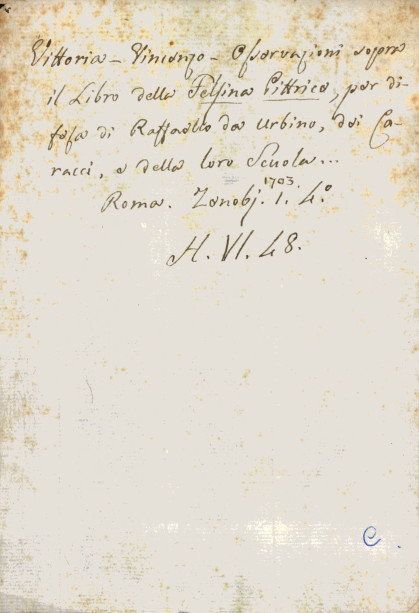 Vittoria - Vincenzo - Osservazioni sopra
il Libro della Felsina Pittrice, per di-
fesa di Raffaello da Urbino, dei Ca-
racci, e della loro Scuola...
1703.
Roma. Zenobj. 1. 4.º
H. VI. 48.
C